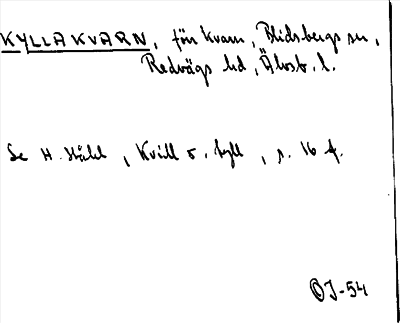 KYLLAKVARN, förr kvarn, Blidsbergs sn,
Redvägs hd, Älvsb. l.
Se H. Ståhl, Kvill o. kyll, s. 16 f.
OJ-54